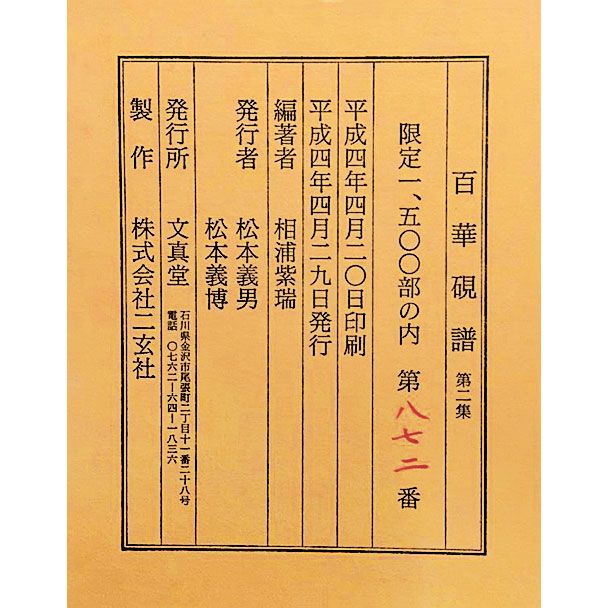 百華硯譜 第二集
限定一、五〇〇部の内 第八七二番
平成四年四月二〇日印刷
平成四年四月二九日発行
編著者 相浦紫瑞
発行者 松本義男
松本義博
発行所 文真堂
石川県金沢市尾張町二丁目十一番二十八号
電話 〇七六二―六四―一八三六
製作 株式会社二玄社